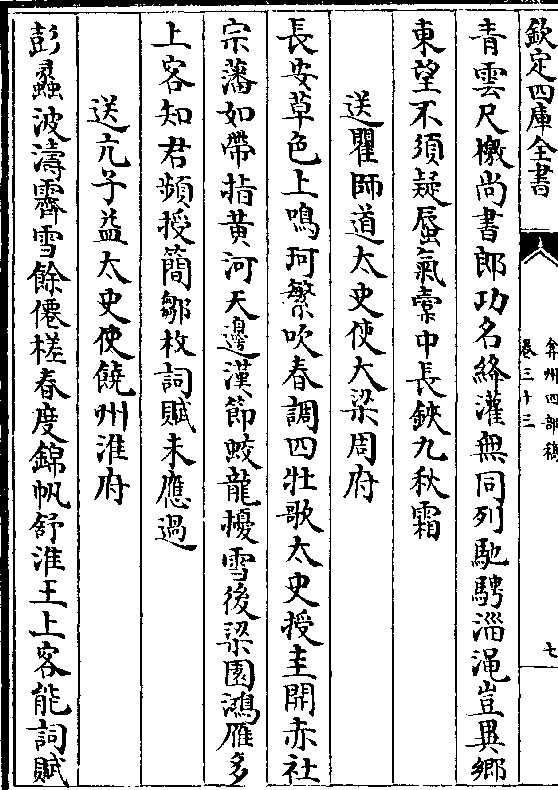 欽定四庫全書
弇州四部稿
卷三十三
七
青雲尺檄尚書郎功名絳灌無同列馳騁淄澠豈異鄉
東望不須疑蜃氣橐中長鋏九秋霜
送瞿師道太史使大梁周府
長安草色上鳴珂繁吹春調四牡歌太史授圭開赤社
宗藩如帶指黄河天邊漢節蛟龍擾雪後梁園鴻雁多
上客知君頻授簡鄒枚詞賦未應過
送亢子益太史使饒州淮府
彭蠡波濤霽雪餘僊槎春度錦帆舒淮王上客能詞賦